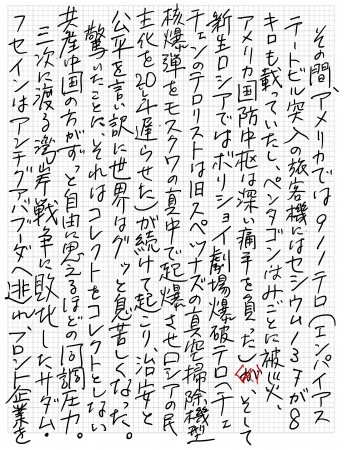 その間、アメリカでは９１１テロ（エンパイアス
テートビル突入の旅客機にはセシウム１３７が８
キロも載っていたし、ペンタゴンはみごとに被災、
アメリカ国防中枢は深い痛手を負った）が、そして
新生ロシアではボリショイ劇場爆破テロ（チェ
チェンのテロリストは旧スペツナズの真空掃除機型
核爆弾をモスクワの真中で起爆させロシアの民
主化を20年遅らせた）が続けて起こり、治安と
公平を言い訳に世界はグッと見苦しくなった。
驚いたことに、それはコレクトをコレクトとしない
共産中国の方がずっと自由に思えるほどの同調圧力。
三次に渡る湾岸戦争に敗北したサダム・
フセインはアンチグアバブーダへ逃れ、フロント企業を